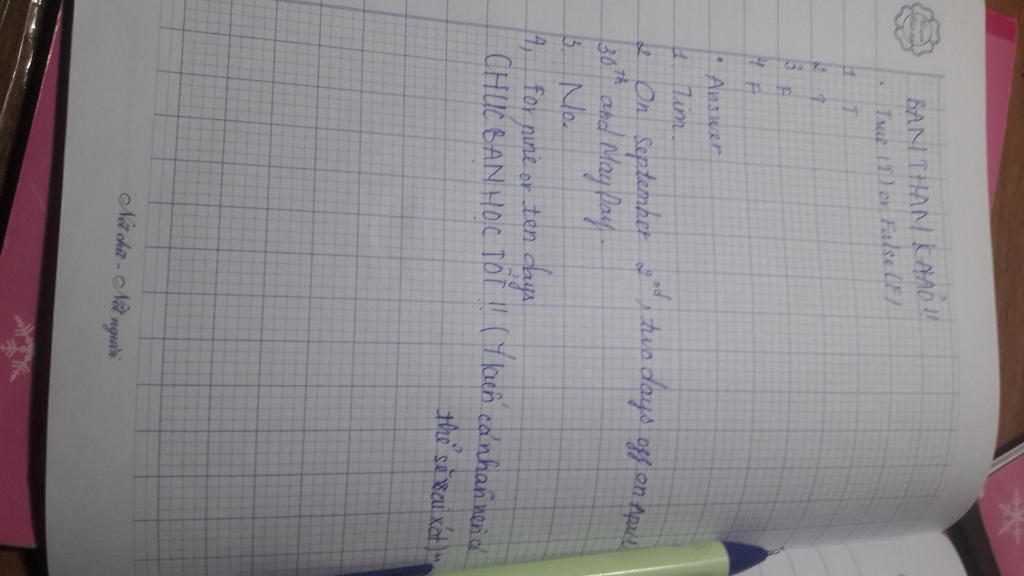 BẠN THAM KHẢO!!
• True (T) or False (F)
1 T
2 T
3 F
4 F
• Answer
1. Tim.
2 On September 2nd, two days off on April
30th and May Day.
3 No.
4, for nine or ten days
CHÚC BẠN HỌC TỐT!! (Ý kiến cá nhân nên có
thể sẽ sai xót)
Nét chữ - Nết người